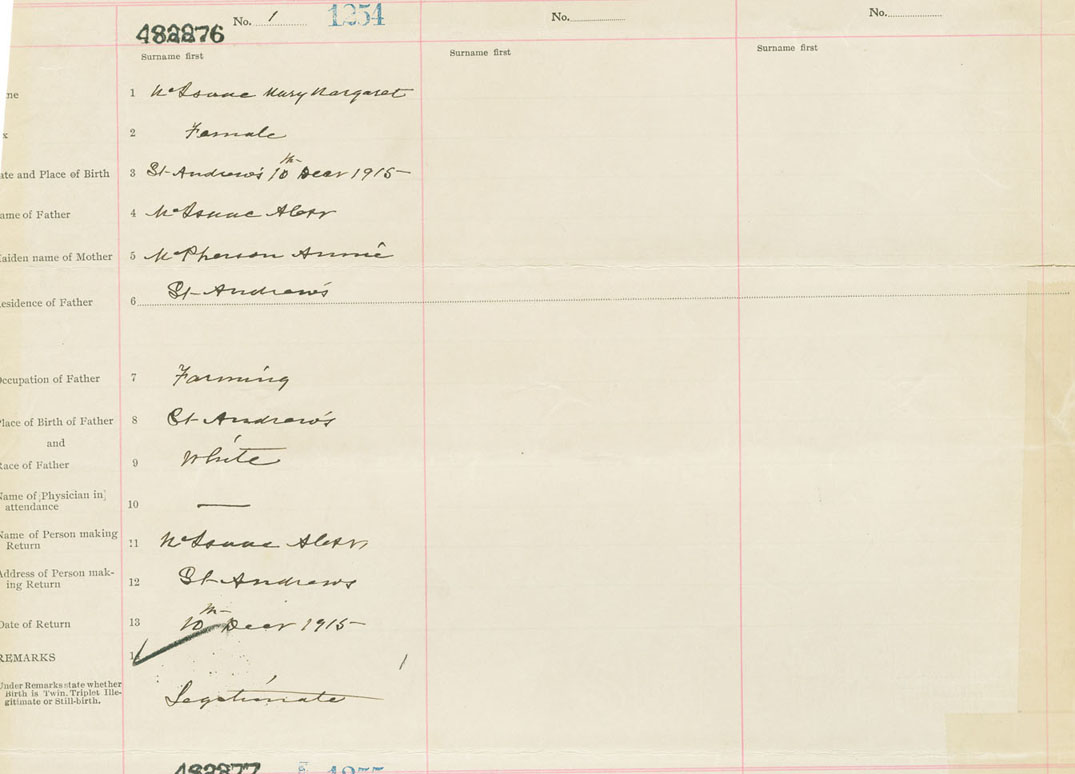 No. 1 1254 No. No.
482876
Surname first Surname first Surname first
me 1 McIsaac Mary Margaret
x 2 Female
ate and Place of Birth 3 St Andrew's 10th Decr 1915
ame of Father 4 McIsaac Alexr
aiden name of Mother 5 McPherson Annie
esidence of Father 6 St Andrew's
Occupation of Father 7 Farming
Place of Birth of Father 8 St Andrew's
and
Race of Father 9 White
Name of Physician in
attendance 10 —
Name of Person making
Return 11 McIsaac Alexr
Address of Person mak-
ing Return 12 St Andrews
Date of Return 13 10th Decr 1915
REMARKS 14
Under Remarks state whether
Birth is Twin, Triplet Ille-
gitimate or Still-birth. Legitimate
482877 1255